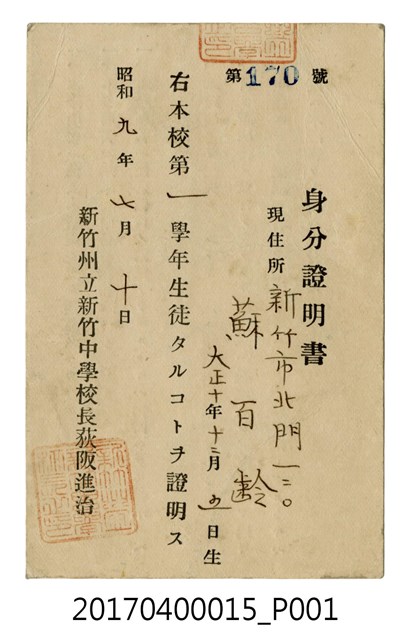 第170號
身分證明書
現住所 新竹市北門一三〇
蘇百齡
大正十年十二月五日生
右本校第一學年生徒タルコトヲ證明ス
昭和九年七月十日
新竹州立新竹中學校長荻阪進治
20170400015_P001